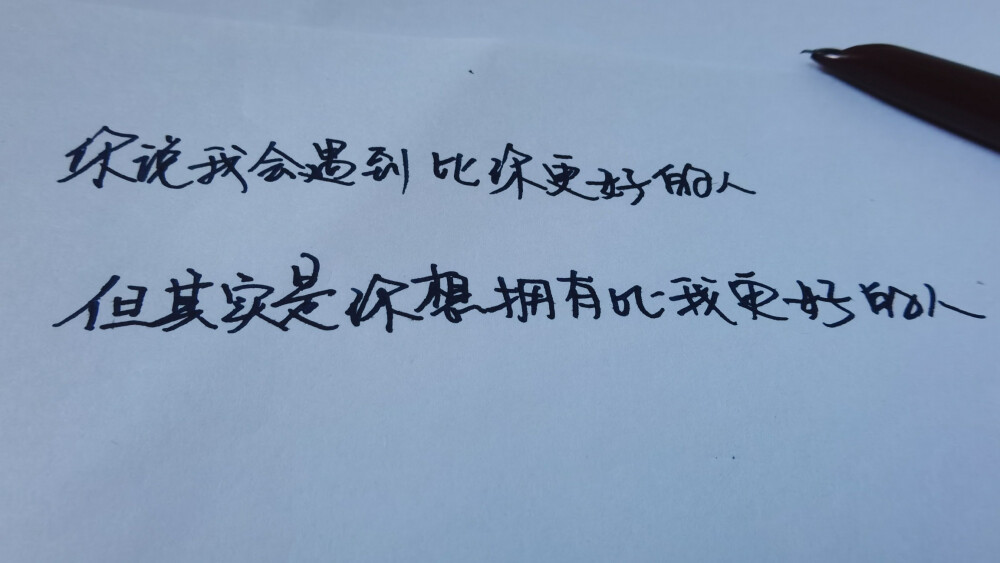 你说我会遇到比你更好的人
但其实是你想拥有比我更好的人